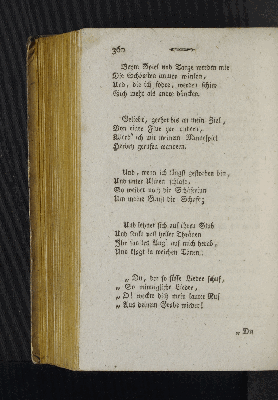 360
Beym Spiel und Tanze werden mir
Die Schönsten immer winken,
Und, die ich lobte, werden schier
Sich mehr als andre dünken.
Geliebt, geehrt bis an mein Ziel,
Von einer Flur zur andern,
Werd' ich mit meinem Saitenspiel
Herbey gerufen wandern.
Und, wenn ich längst gestorben bin,
Und unter Ulmen schlafe,
So weidet noch die Schäferin
Um meine Gruft die Schafe;
Und lehnet sich auf ihren Stab
Und sinkt voll heller Thränen
Ihr sanftes Aug' auf mich herab,
Und klagt in weichen Tönen:
„ Du, der so süße Lieder schuf,
„ So minnigliche Lieder,
„ O! weckte dich mein lauter Ruf
„ Aus deinem Grabe wieder!
„ Du